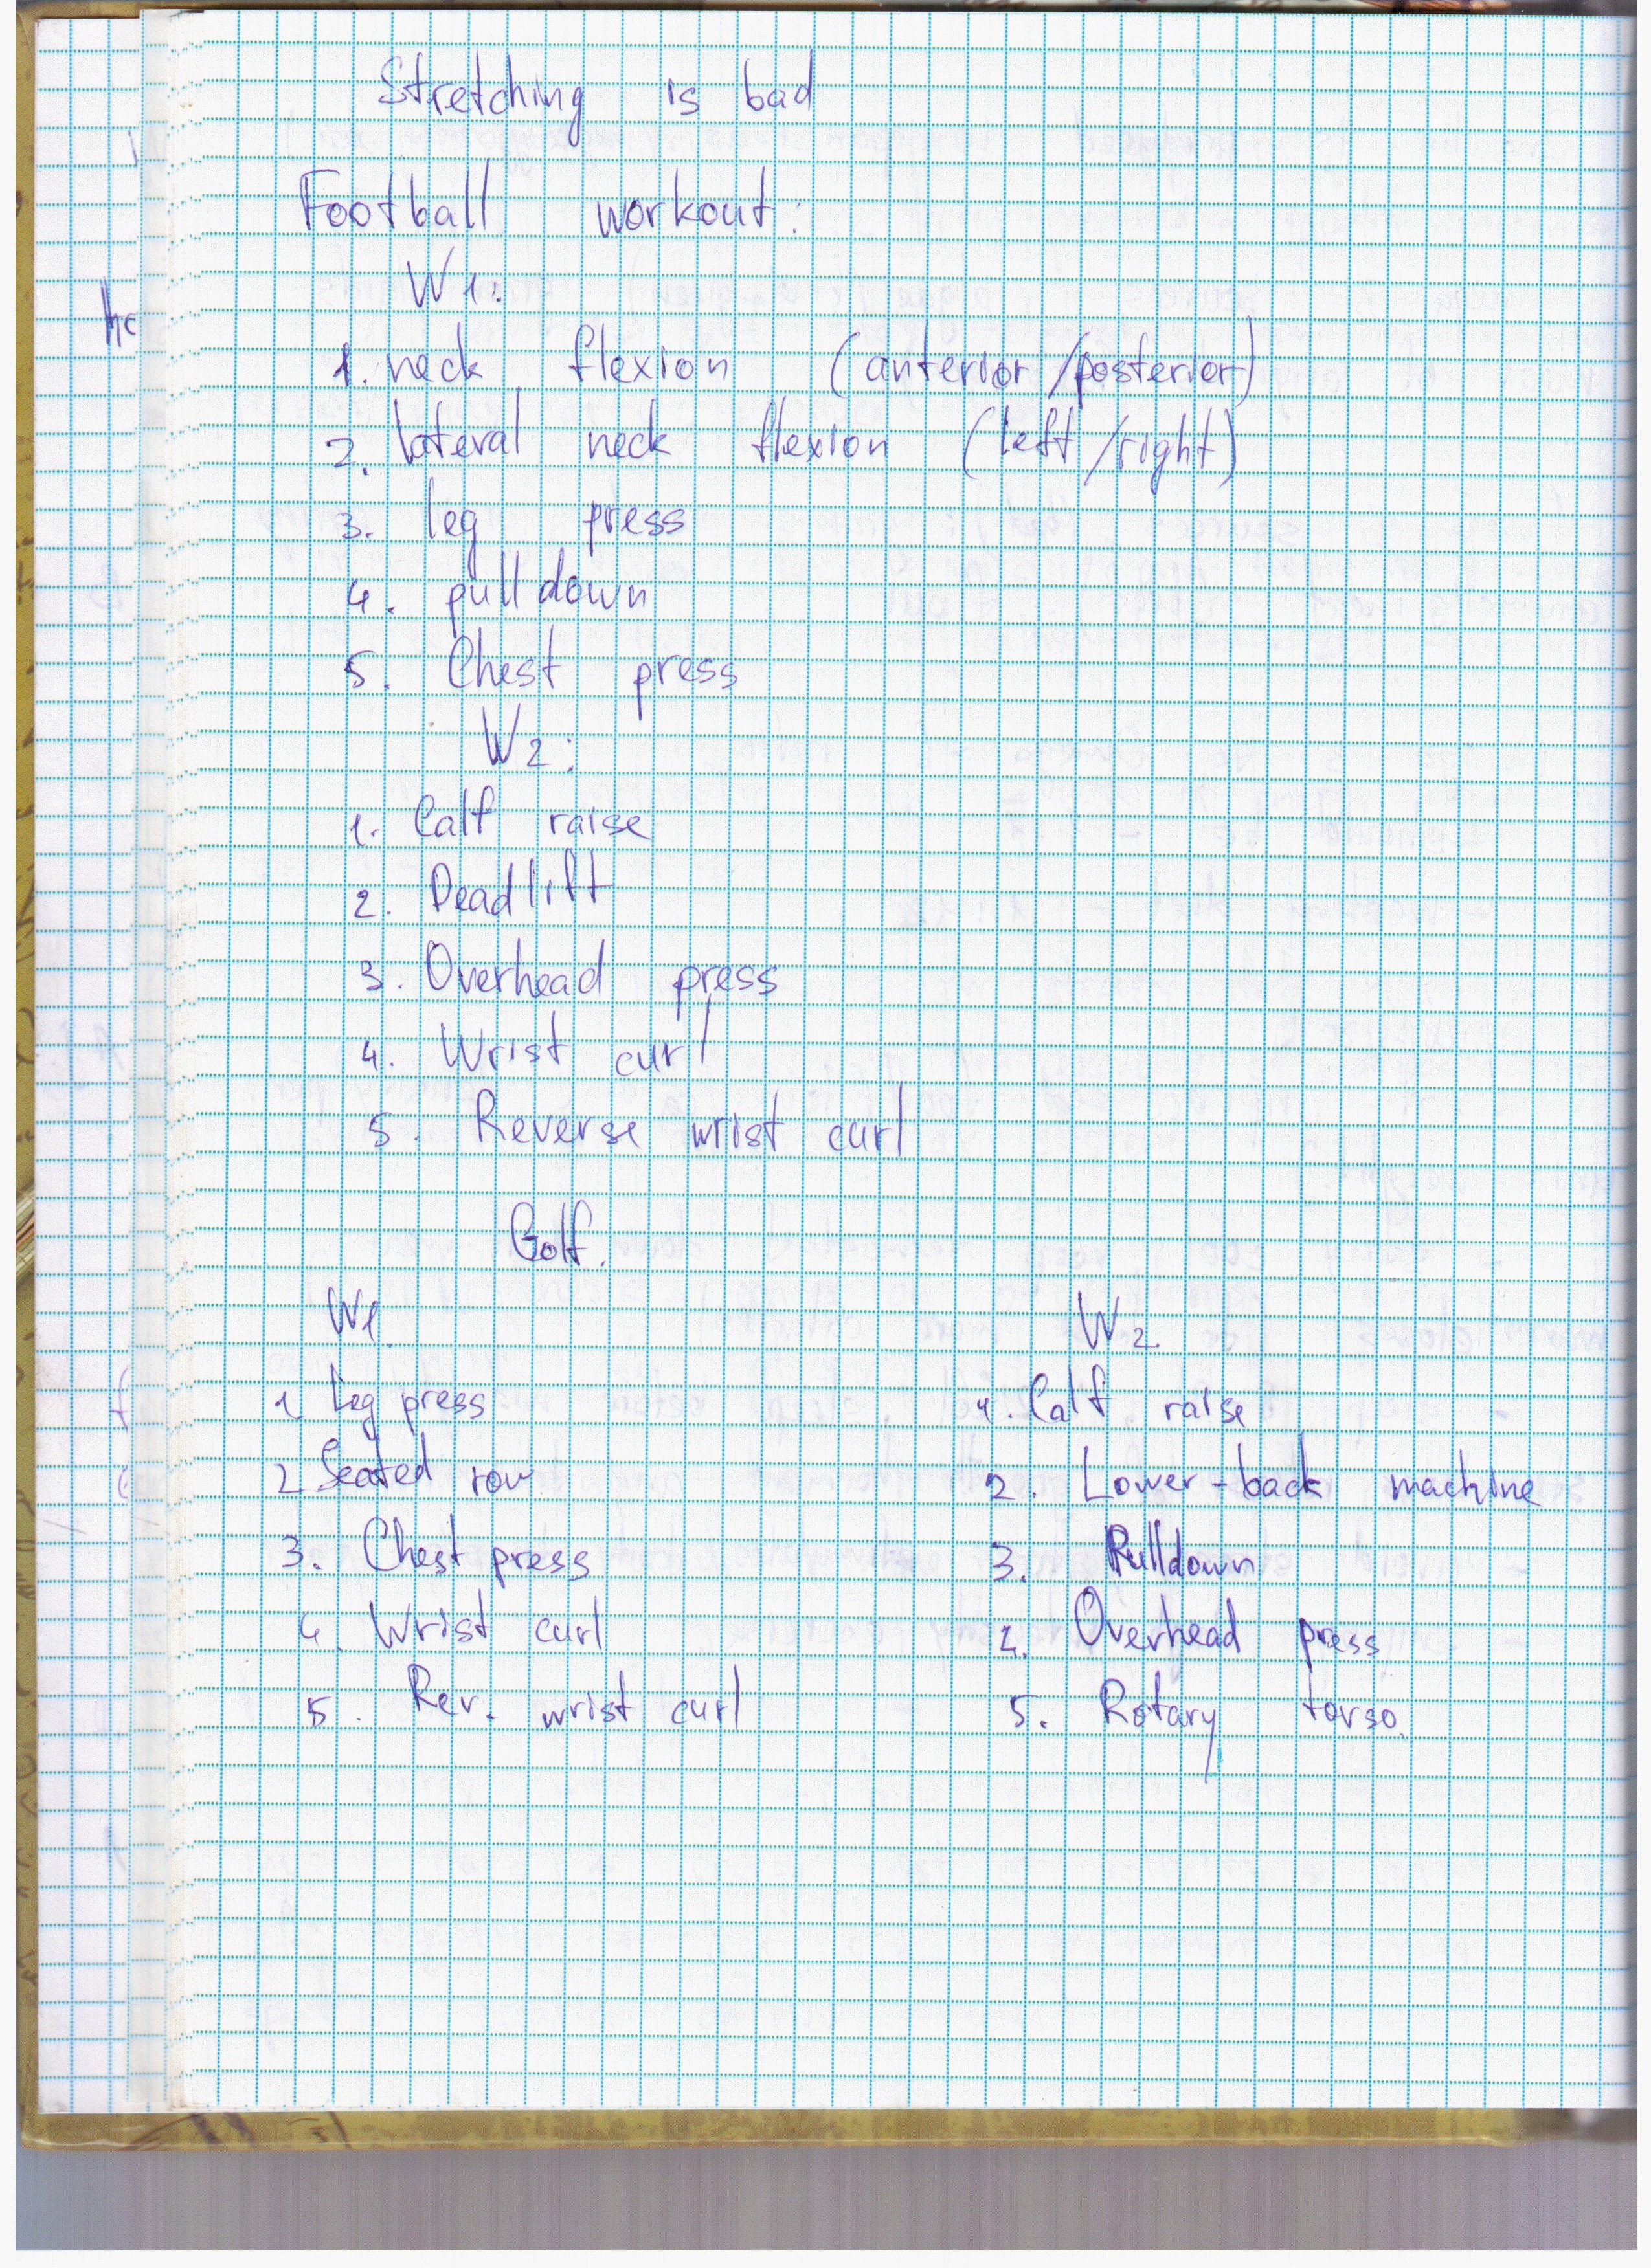 Stretching is bad
Football workout:
W1:
1. neck flexion (anterior/posterior)
2. lateral neck flexion (left/right)
3. leg press
4. pull down
5. Chest press
W2:
1. Calf raise
2. Deadlift
3. Overhead press
4. Wrist curl
5. Reverse wrist curl
Golf.
W1.
1. Leg press
2 Seated row
3. Chest press
4. Wrist curl
5. Rev. wrist curl
W2.
1. Calf raise
2. Lower-back machine
3. Pulldown
4. Overhead press
5. Rotary torso.